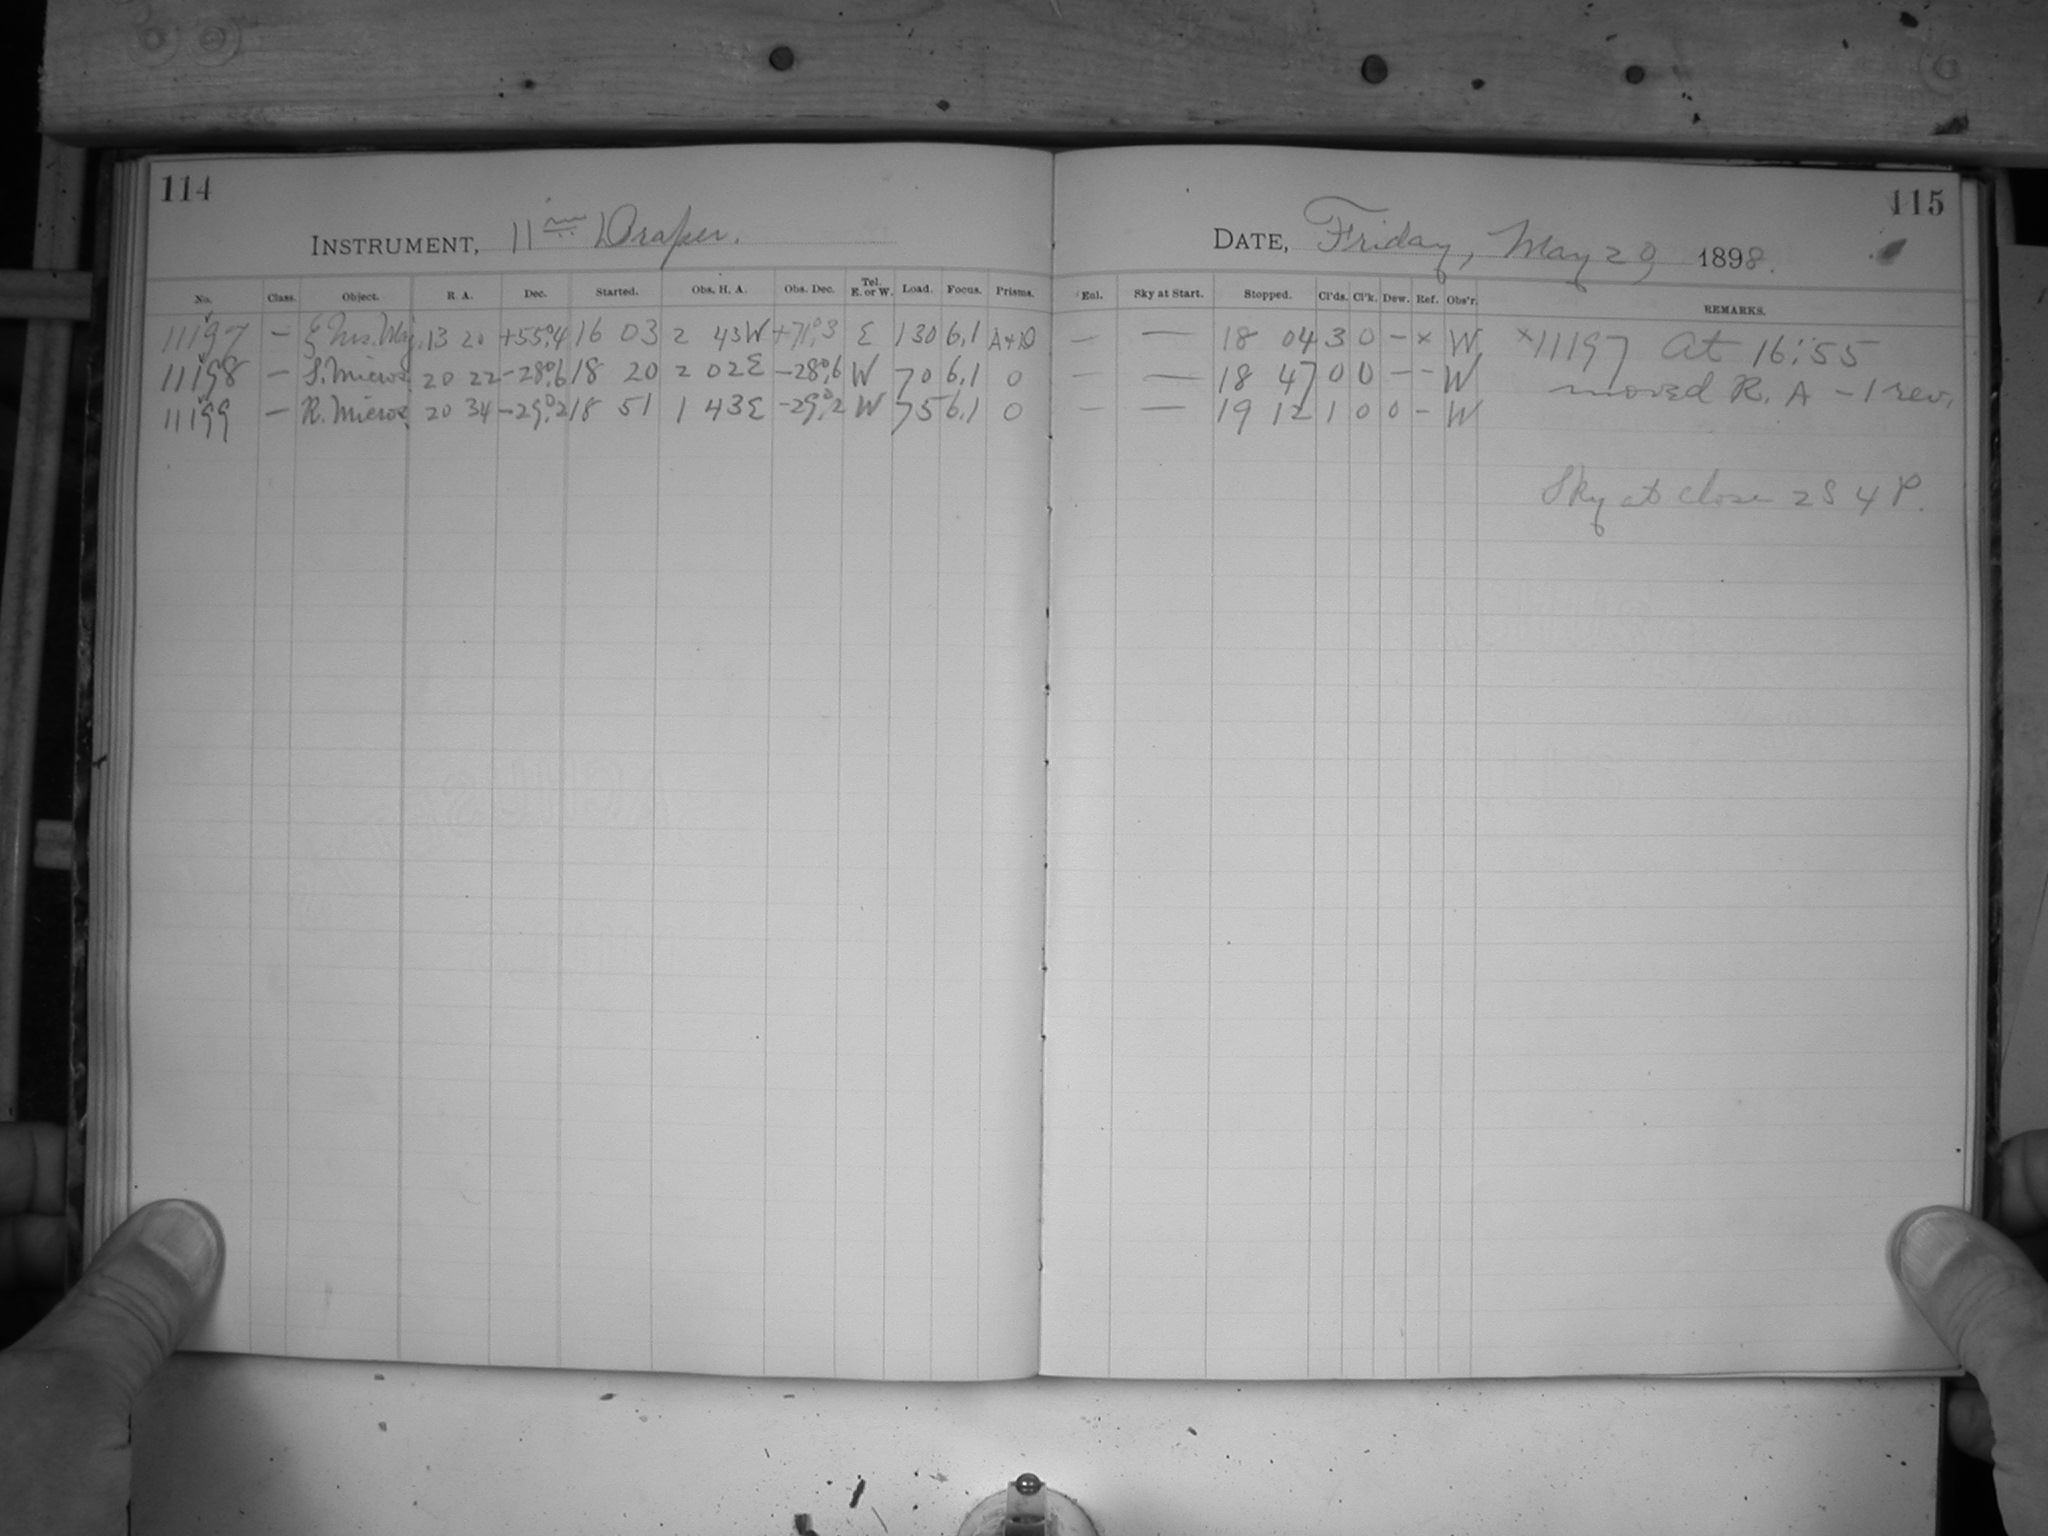 114
INSTRUMENT, 11 in Draper.
No. Class. Object. R. A. Dec. Started. Obs. H. A. Obs. Dec. Tel. E. or W. Load. Focus. Prisms.
11197 — ζ Urs. Maj. 13 20 +55°.4 16 03 2 43W +71°.3 E 130 6.1 A+D
11198 — S. Micros. 20 22 -28°.6 18 20 2 02E -28°.6 W 70 6.1 0
11199 — R. Micros. 20 34 -29°.2 18 51 1 43E -29°.2 W 75 6.1 0
115
DATE, Friday, May 20, 1898.
Enl. Sky at Start. Stopped. Cl'ds. Cl'k. Dew. Ref. Obs'r. REMARKS.
— — 18 04 3 0 - x W x11197 At 16:55
— — 18 47 0 0 - - W moved R. A -1 rev.
— — 19 12 1 0 0 - W
Sky at close 2S 4P.